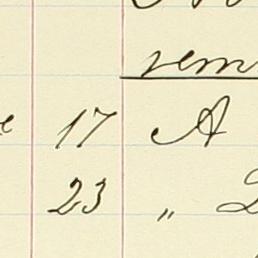 rem
e 17 A
23 "